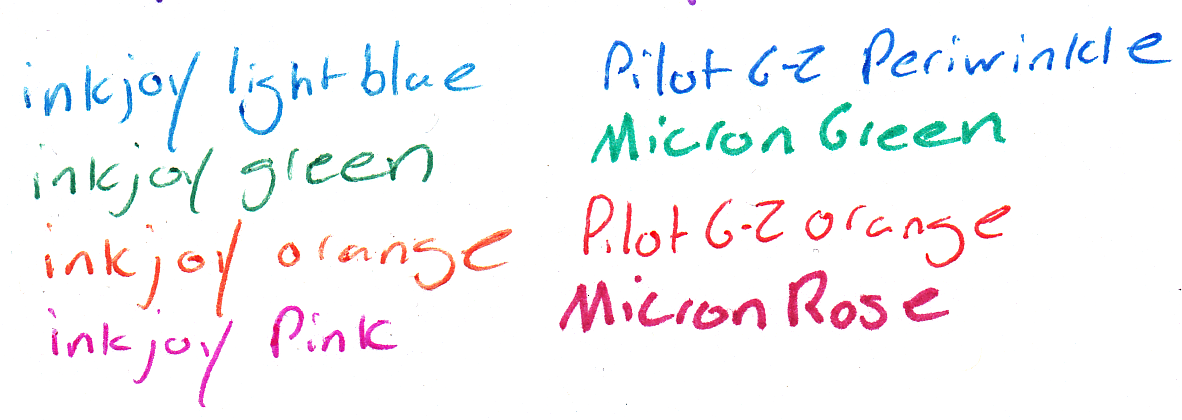 inkjoy light blue
inkjoy green
inkjoy orange
inkjoy Pink
Pilot G-2 Periwinkle
Micron Green
Pilot G-2 orange
Micron Rose